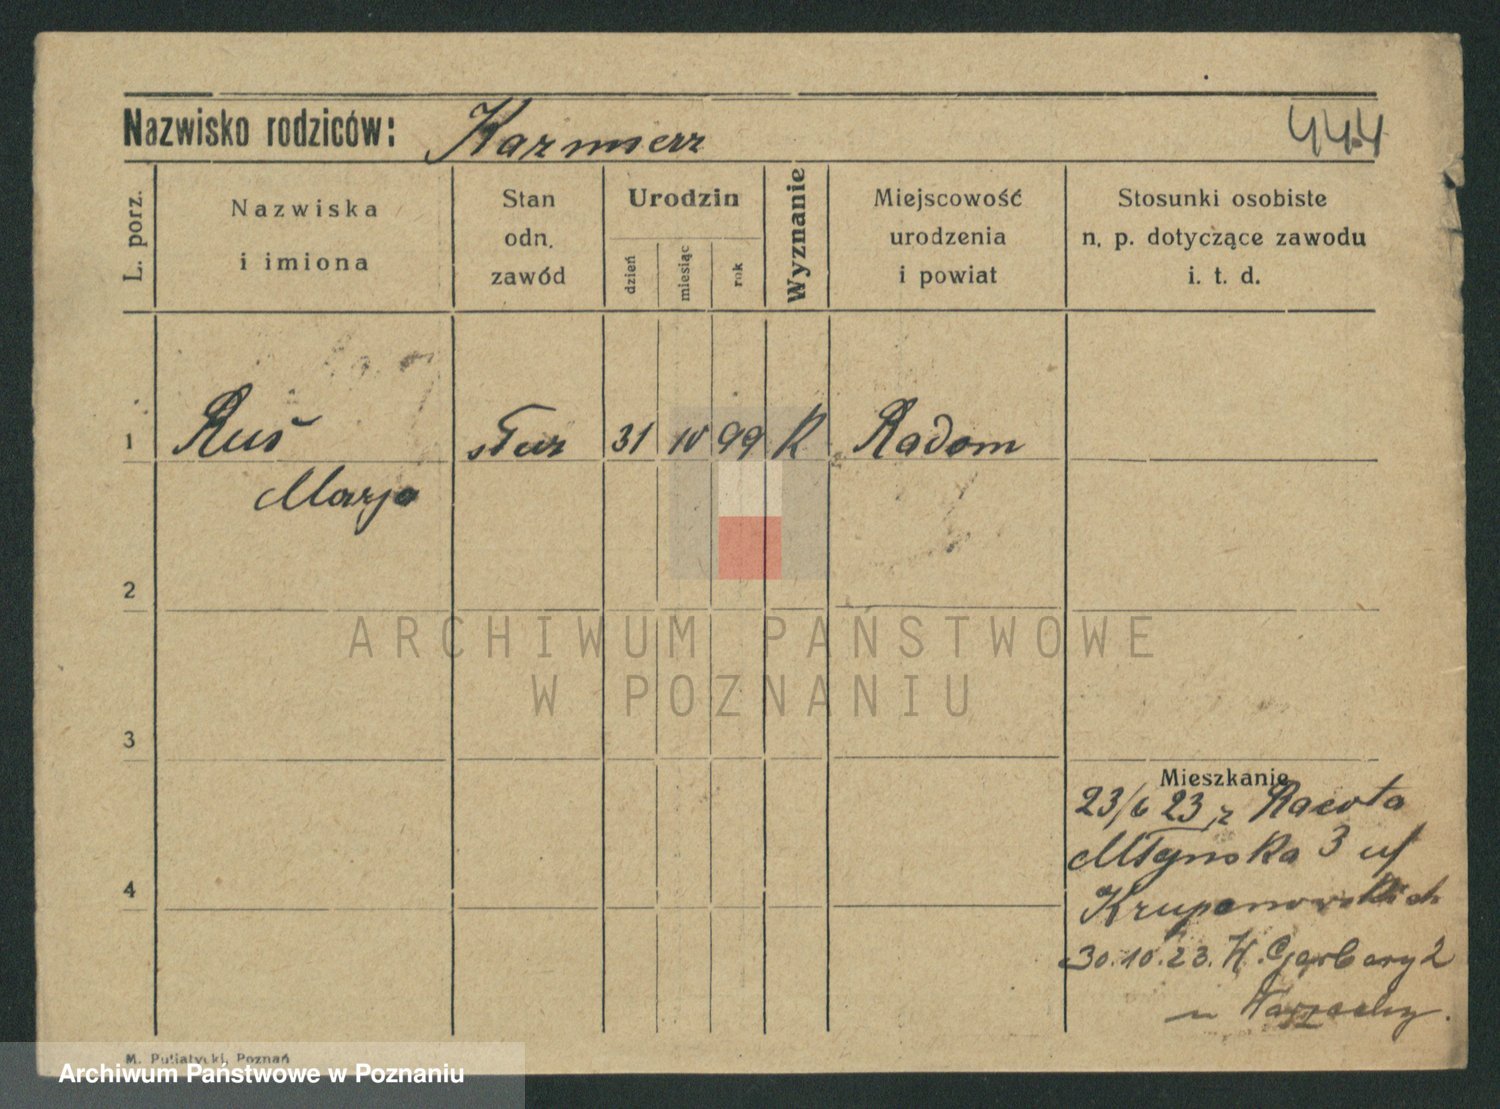 Nazwisko rodziców: Kazmierz
444
L. porz.
Nazwiska
i imiona
Stan
odn.
zawód
Urodzin
dzień
miesiąc
rok
Wyznanie
Miejscowość
urodzenia
i powiat
Stosunki osobiste
n. p. dotyczące zawodu
i. t. d.
1 Ruś służ 31 10 99 R Radom
Marja
2
ARCHIWUM PAŃSTWOWE
W POZNANIU
3
Mieszkanie
23/6 23 z Racota
Młyńska 3 uf
4
30.10.23. W. Garbary 2
M. Putiatycki, Poznań
Archiwum Państwowe w Poznaniu